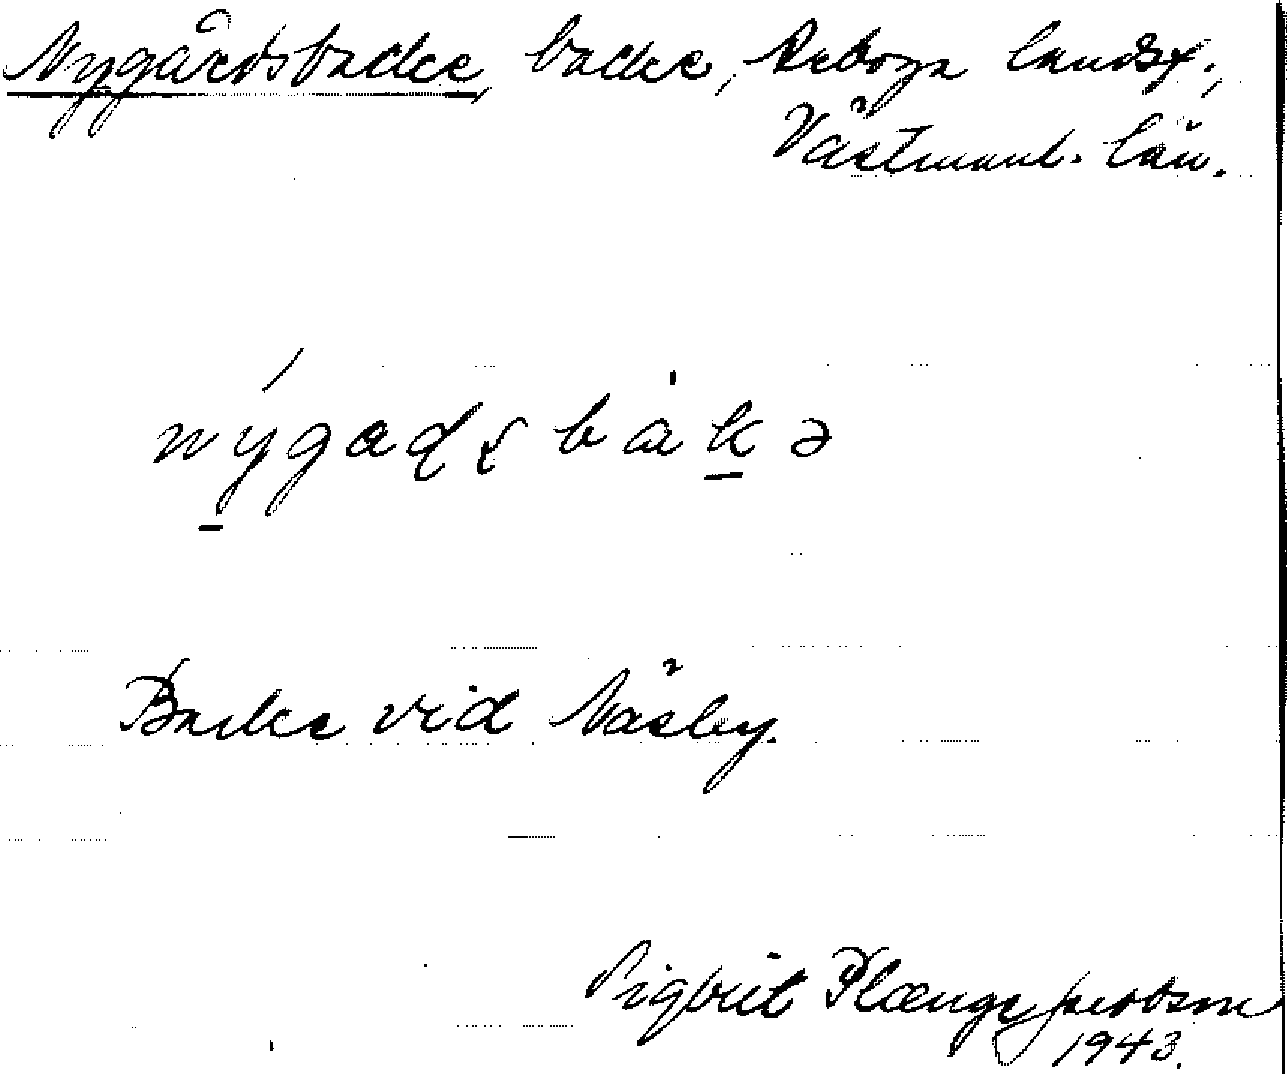 Nygårdsbacke, backe, Arboga landsf.,
Västmanl. län.
nýgaɖʂbàkə
Backe vid Näsby.
Sigbrit Plænge Jacobson
1943.